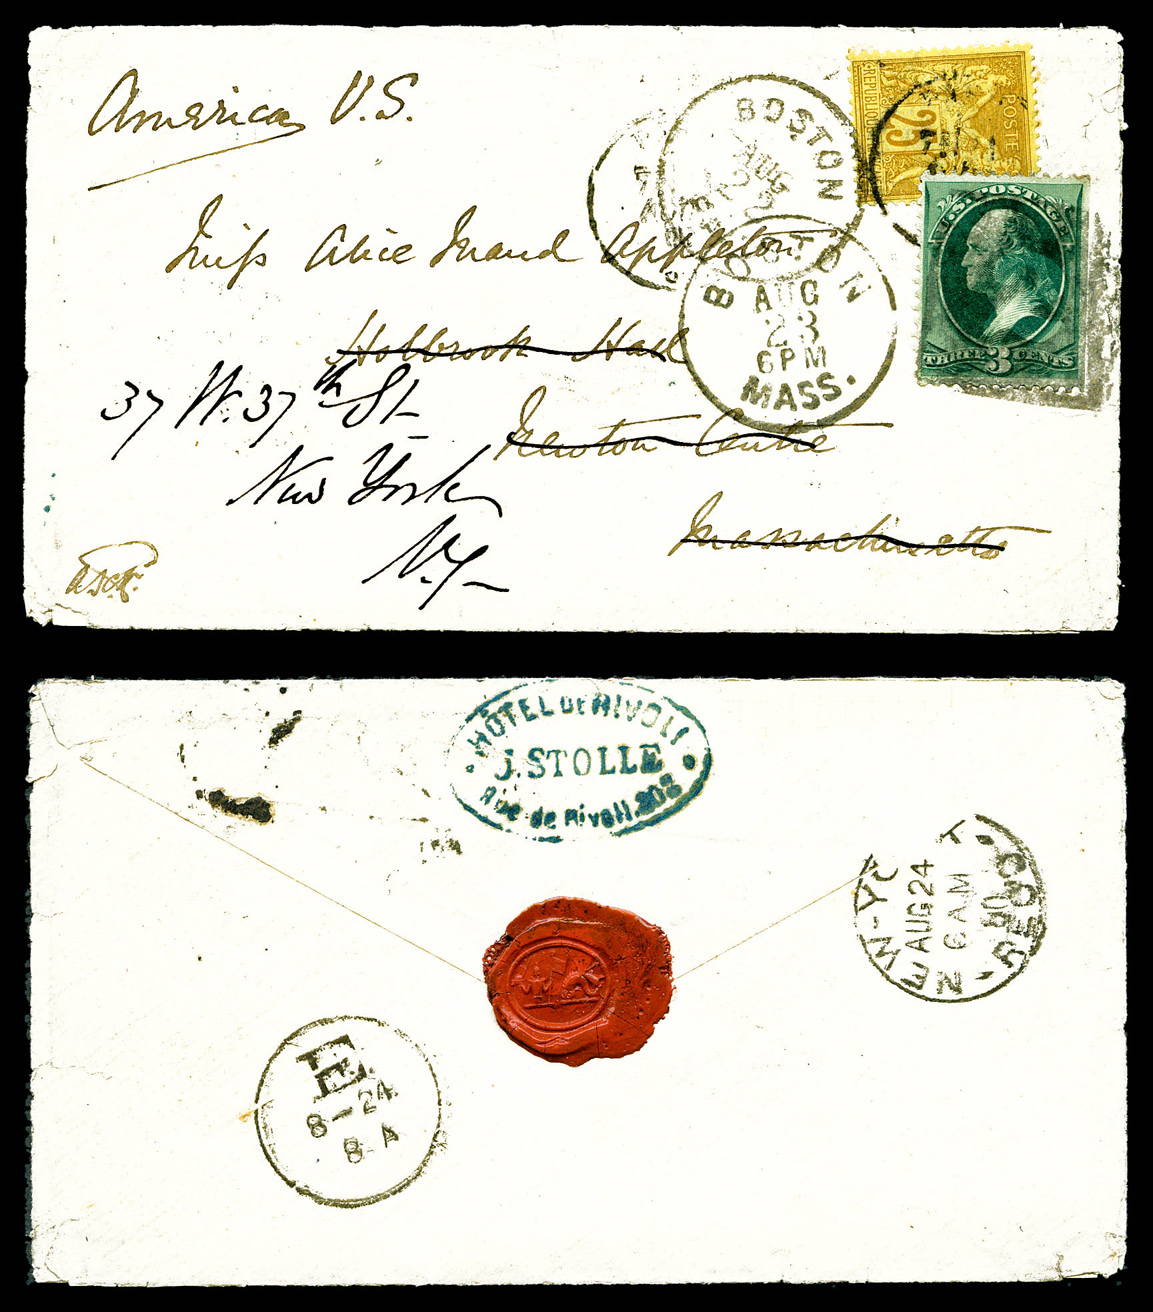 America U.S.
Miss Alice Maud Appleton
Holbrook Hall
Newton Centre
Massachusetts
37 W. 37th St
New York
N.Y.
BOSTON
AUG
BOSTON
AUG
23
6 PM
MASS.
REPUBLIQUE
25
POSTE
U.S. POSTAGE
THREE 3 CENTS
HÔTEL DE RIVOLI
J. STOLLE
Rue de Rivoli. 202
NEW-YO
AUG 24
6 AM
80
RECD
E.
8-24
8 A